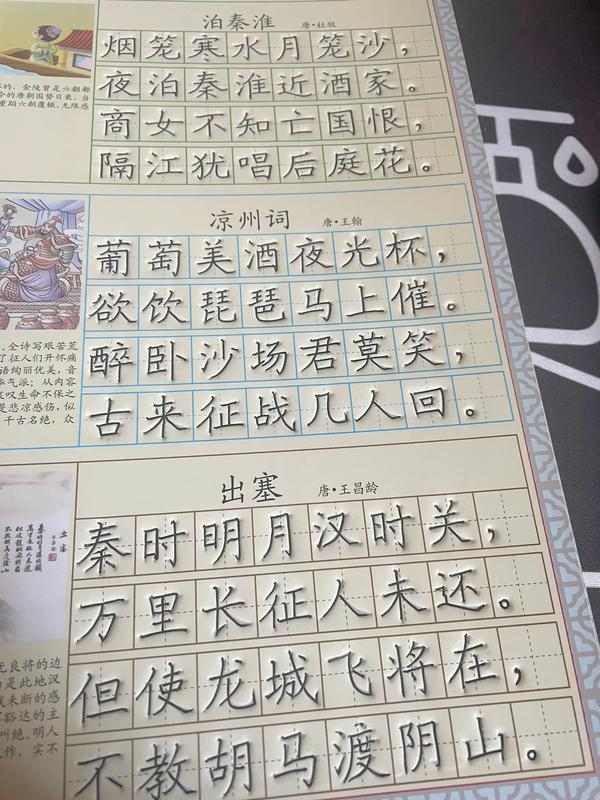 泊秦淮 唐·杜牧
烟笼寒水月笼沙，
夜泊秦淮近酒家。
商女不知亡国恨，
隔江犹唱后庭花。
的，金陵曾是六朝都
的唐朝国势日衰，当
重蹈六朝覆辙，无限感
凉州词 唐·王翰
葡萄美酒夜光杯，
欲饮琵琶马上催。
醉卧沙场君莫笑，
古来征战几人回。
全诗写艰苦荒
了征人们开怀痛
语绚丽优美，音
气派；从内容
叹生命不保之
是悲凉感伤，似
千古名绝，众
出塞 唐·王昌龄
秦时明月汉时关，
万里长征人未还。
但使龙城飞将在，
不教胡马渡阴山。
出塞
秦时明月汉时关
无良将的边
是此地汉
未断的感
豁达的主
叫绝。明人
作，实不